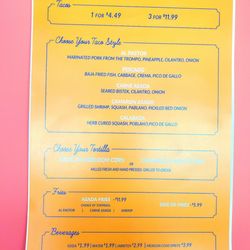 Tacos
1 FOR $4.49 3 FOR $11.99
Choose Your Taco Style
AL PASTOR
MARINATED PORK FROM THE TROMPO, PINEAPPLE, CILANTRO, ONION
PESCADO
BAJA FRIED FISH, CABBAGE, CREMA, PICO DE GALLO
CARNE ASADA
SEARED BISTEK, CILANTRO, ONION
CAMARON
GRILLED SHRIMP, SQUASH, POBLANO, PICKLED RED ONION
CALABAZA
HERB CURED SQUASH, POBLANO, PICO DE GALLO
Choose Your Tortilla
HEIRLOOM CORN OR
MILLED FRESH AND HAND PRESSED. GRILLED TO ORDER
Fries
ASADA FRIES $11.99
CHOICE OF TOPPINGS:
AL PASTOR | CARNE ASADA | SHRIMP
SIDE OF FRIES $3.99
Beverages
SODA $1.99 | WATER $1.99 | JARRITOS $2.99 | MEXICAN COKE SPRITE $3.99